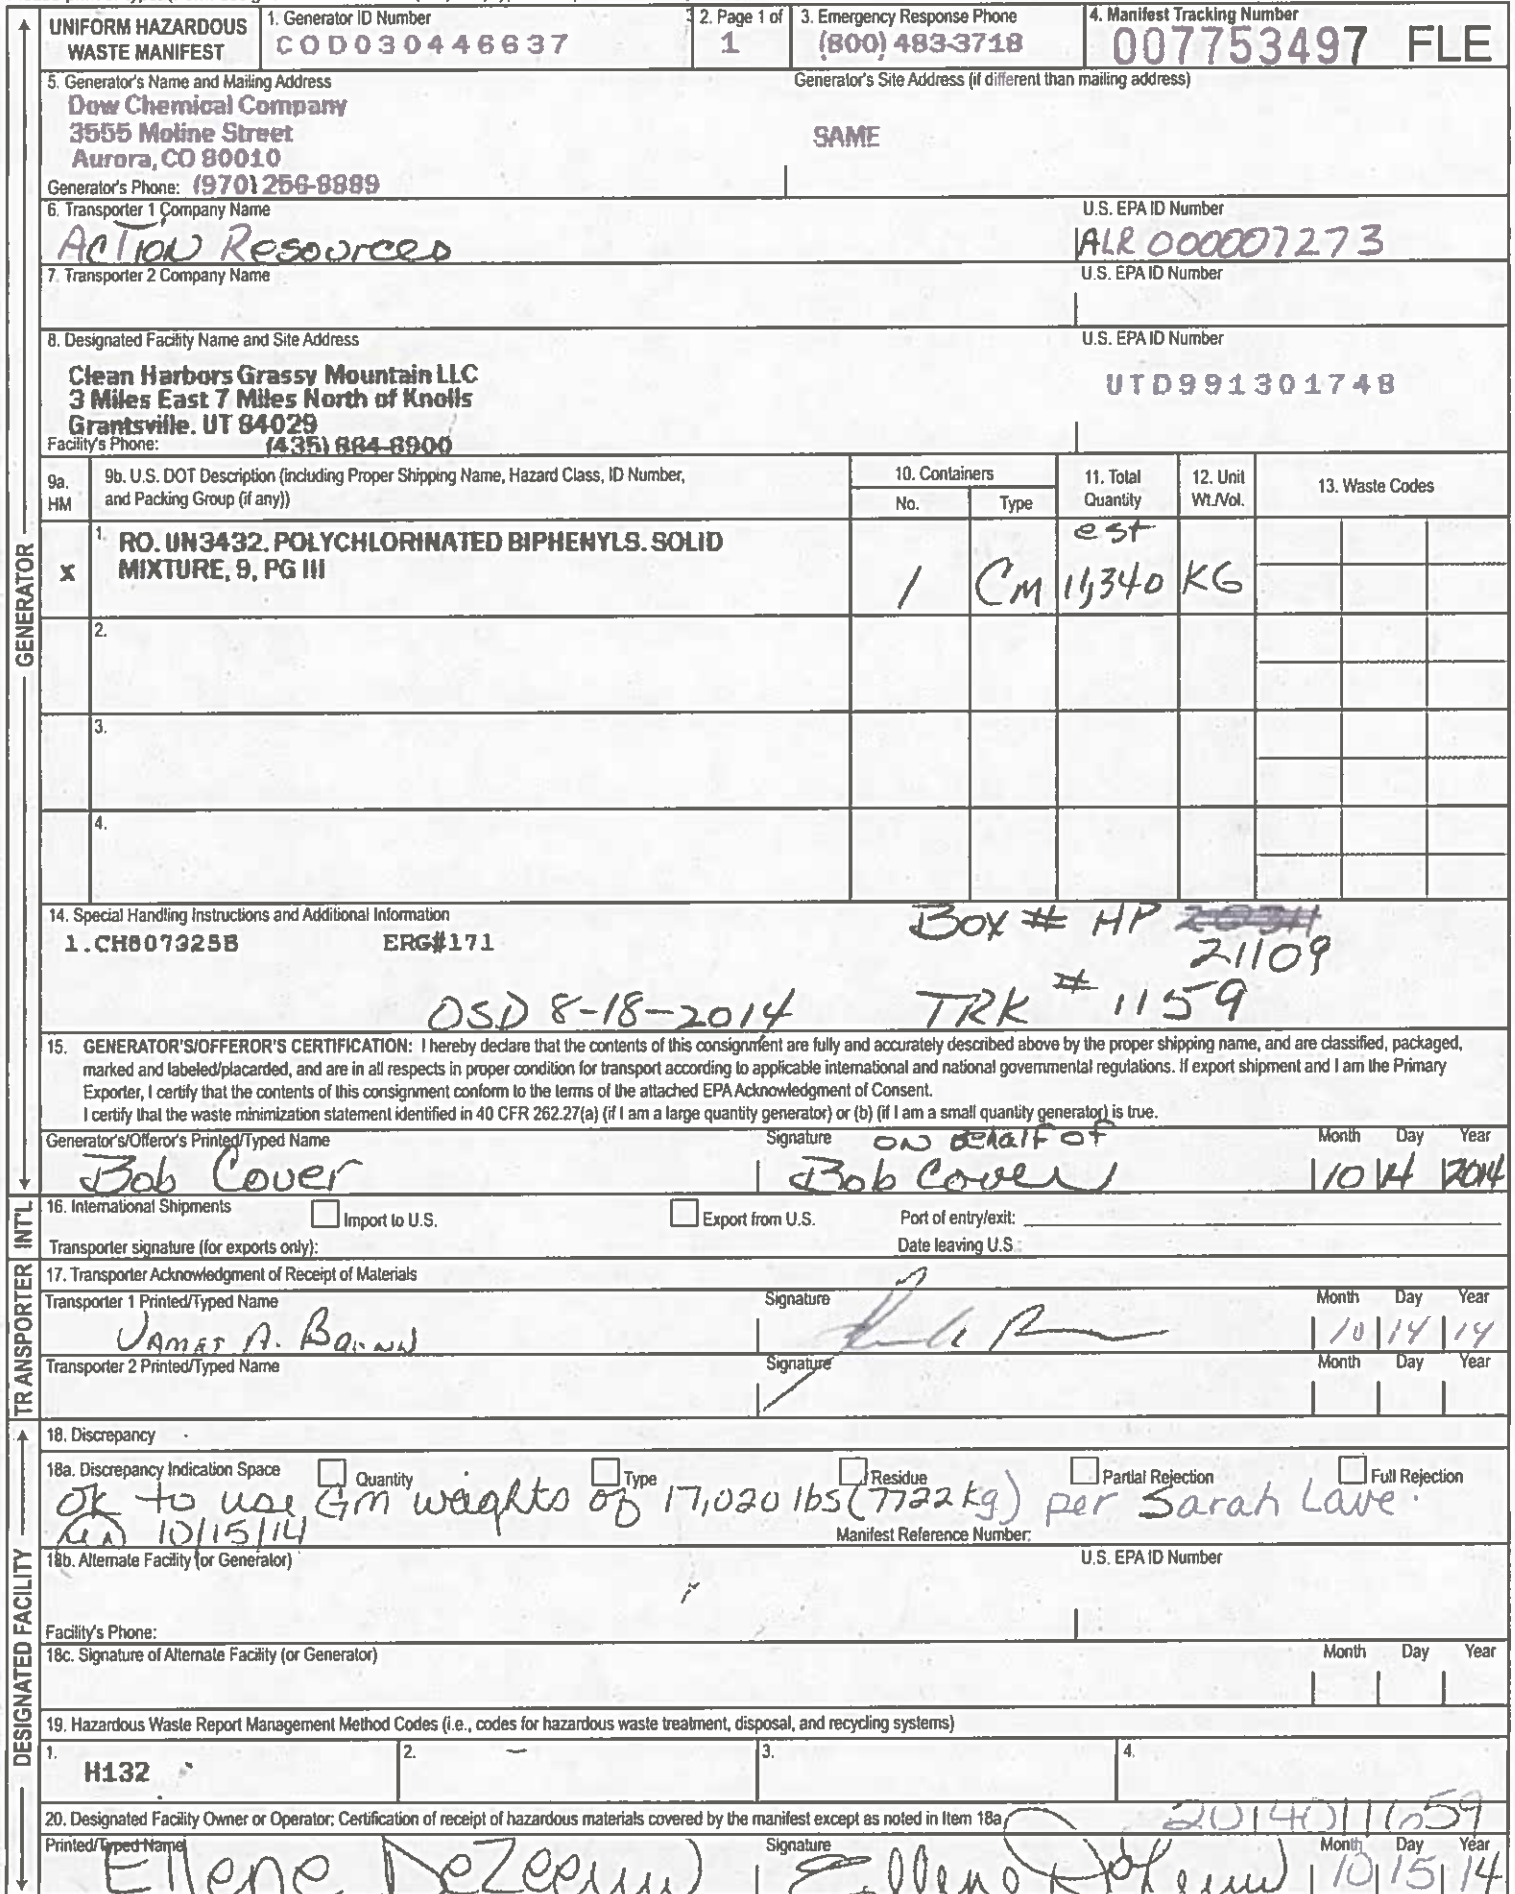 UNIFORM HAZARDOUS WASTE MANIFEST
1. Generator ID Number
COD030446637
2. Page 1 of
1
3. Emergency Response Phone
(800) 483-3718
4. Manifest Tracking Number
007753497 FLE
5. Generator's Name and Mailing Address
Dow Chemical Company
3555 Moline Street
Aurora, CO 80010
Generator's Phone: (970) 256-8889
Generator's Site Address (if different than mailing address)
SAME
6. Transporter 1 Company Name
Action Resources
U.S. EPA ID Number
ALR 000007273
7. Transporter 2 Company Name
U.S. EPA ID Number
8. Designated Facility Name and Site Address
Clean Harbors Grassy Mountain LLC
3 Miles East 7 Miles North of Knolls
Grantsville. UT 84029
Facility's Phone: (435) 884-8900
U.S. EPA ID Number
UTD991301748
9a. HM
9b. U.S. DOT Description (including Proper Shipping Name, Hazard Class, ID Number, and Packing Group (if any))
10. Containers
No.
Type
11. Total Quantity
12. Unit Wt./Vol.
13. Waste Codes
X
1. RO. UN3432. POLYCHLORINATED BIPHENYLS. SOLID
MIXTURE, 9, PG III
1
CM
est
11,340
KG
2.
3.
4.
14. Special Handling Instructions and Additional Information
1.CH807325B ERG#171
Box # HP
21109
OSD 8-18-2014 TRK # 1159
15. GENERATOR'S/OFFEROR'S CERTIFICATION: I hereby declare that the contents of this consignment are fully and accurately described above by the proper shipping name, and are classified, packaged,
marked and labeled/placarded, and are in all respects in proper condition for transport according to applicable international and national governmental regulations. If export shipment and I am the Primary
Exporter, I certify that the contents of this consignment conform to the terms of the attached EPA Acknowledgment of Consent.
I certify that the waste minimization statement identified in 40 CFR 262.27(a) (if I am a large quantity generator) or (b) (if I am a small quantity generator) is true.
Generator's/Offeror's Printed/Typed Name
Bob Cover
Signature
on behalf of
Bob Cover
Month Day Year
10 14 2014
16. International Shipments
Import to U.S.
Export from U.S.
Port of entry/exit:
Transporter signature (for exports only):
Date leaving U.S.:
17. Transporter Acknowledgment of Receipt of Materials
Transporter 1 Printed/Typed Name
Signature
Month Day Year
10 14 14
Transporter 2 Printed/Typed Name
Signature
Month Day Year
18. Discrepancy
18a. Discrepancy Indication Space
Quantity
Type
Residue
Partial Rejection
Full Rejection
OK to use GM weights of 17,020 lbs (7722 kg) per Sarah
10/15/14
Manifest Reference Number:
18b. Alternate Facility (or Generator)
U.S. EPA ID Number
Facility's Phone:
18c. Signature of Alternate Facility (or Generator)
Month Day Year
19. Hazardous Waste Report Management Method Codes (i.e., codes for hazardous waste treatment, disposal, and recycling systems)
1. H132
2.
3.
4.
20. Designated Facility Owner or Operator: Certification of receipt of hazardous materials covered by the manifest except as noted in Item 18a
Printed/Typed Name
Ellene DeZeeuw
Signature
Month Day Year
10 15 14
GENERATOR
INT'L
TRANSPORTER
DESIGNATED FACILITY